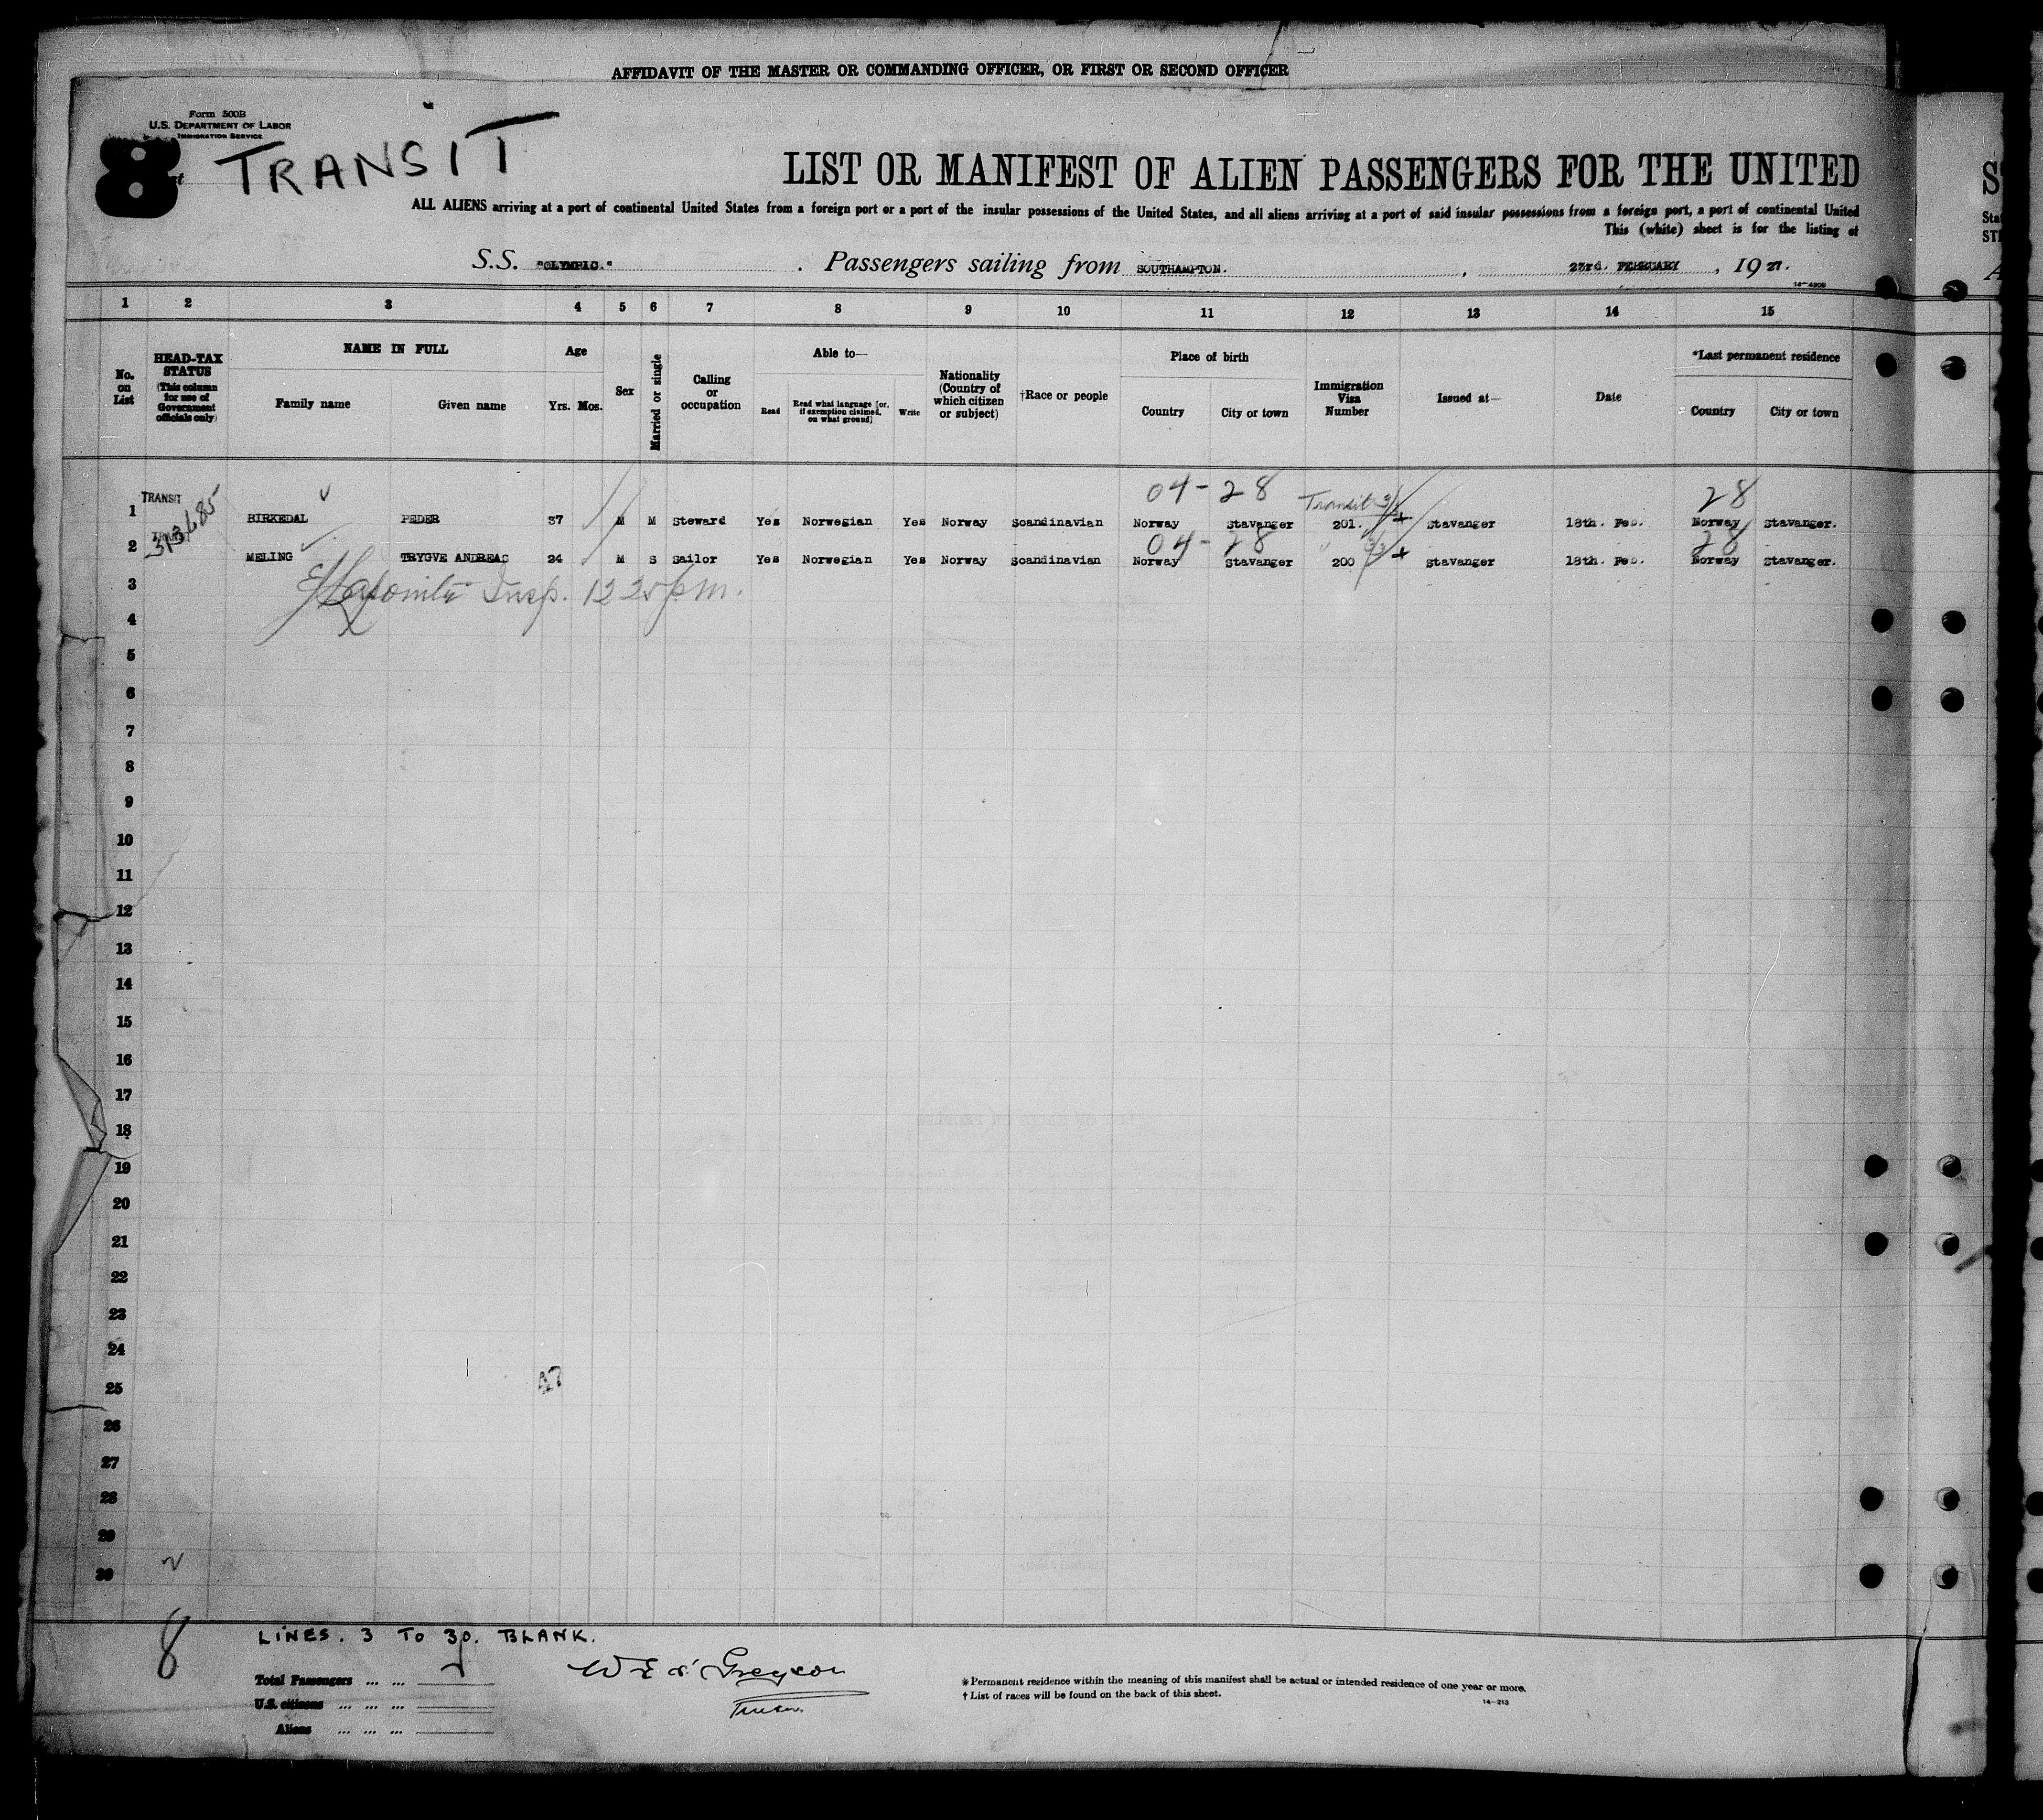 AFFIDAVIT OF THE MASTER OR COMMANDING OFFICER, OR FIRST OR SECOND OFFICER
Form 500B
U.S. DEPARTMENT OF LABOR
IMMIGRATION SERVICE
8 TRANSIT
LIST OR MANIFEST OF ALIEN PASSENGERS FOR THE UNITED
ALL ALIENS arriving at a port of continental United States from a foreign port or a port of the insular possessions of the United States, and all aliens arriving at a port of said insular possessions from a foreign port, a port of continental United
This (white) sheet is for the listing of
S.S. "OLYMPIC." Passengers sailing from SOUTHAMPTON. , 23rd. FEBRUARY , 19 27.
1 2 3 4 5 6 7 8 9 10 11 12 13 14 15
No. on List
HEAD-TAX STATUS (This column for use of Government officials only)
NAME IN FULL
Family name Given name
Age
Yrs. Mos.
Sex
Married or single
Calling or occupation
Able to—
Read Read what language [or, if exemption claimed, on what ground] Write
Nationality (Country of which citizen or subject)
†Race or people
Place of birth
Country City or town
Immigration Visa Number
Issued at—
Date
*Last permanent residence
Country City or town
04-28 Transit 28
1 TRANSIT BIRKEDAL PEDER 37 M M Steward Yes Norwegian Yes Norway Scandinavian Norway Stavanger 201. Stavanger 18th. Feb. Norway Stavanger.
313485
04-28 28
2 MELING TRYGVE ANDREAS 24 M S Sailor Yes Norwegian Yes Norway Scandinavian Norway Stavanger 200 Stavanger 18th. Feb. Norway Stavanger.
3 Insp. 12 20 p.m.
4
5
6
7
8
9
10
11
12
13
14
15
16
17
18
19
20
21
22
23
24
25
26
27
28
29
30
8
LINES. 3 TO 30. BLANK.
Total Passengers ... ...
U.S. citizens ... ... ...
Aliens ... ... ...
*Permanent residence within the meaning of this manifest shall be actual or intended residence of one year or more.
†List of races will be found on the back of this sheet.
14—213